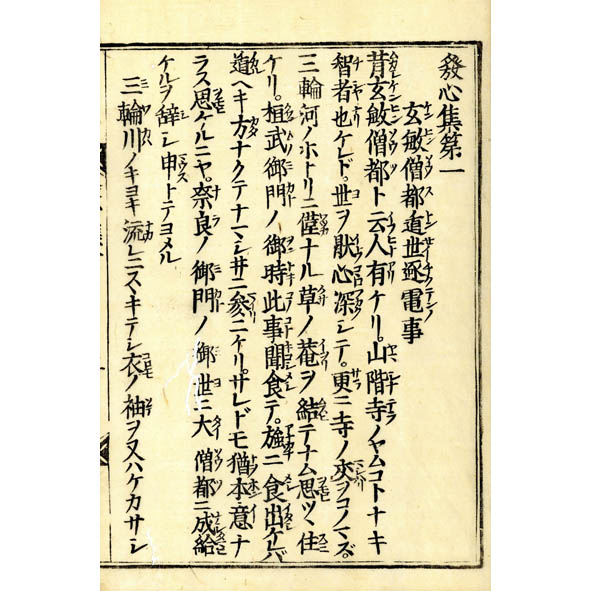 發心集第一
玄敏僧都遁世逐電事
昔玄敏僧都ト云人有ケリ。山階寺ノヤムコトナキ
智者也ケレド。世ヲ厭心深シテ。更ニ寺ノ交ヲコノマズ。
三輪河ノホトリニ僅ナル草ノ菴ヲ結テナム思ツヽ住
ケリ。桓武御門ノ御時此事聞食テ。強ニ食出ケレバ
道ヘキ方ナクテナマシ井ニ参ニケリ。サレドモ猶本意ナ
ラス思ケルニヤ。奈良ノ御門ノ御世ニ大僧都ニ成給
ケルヲ辞シ申トテヨメル
三輪川ノキヨキ流レニスヽキテシ衣ノ袖ヲ又ハケカサシ